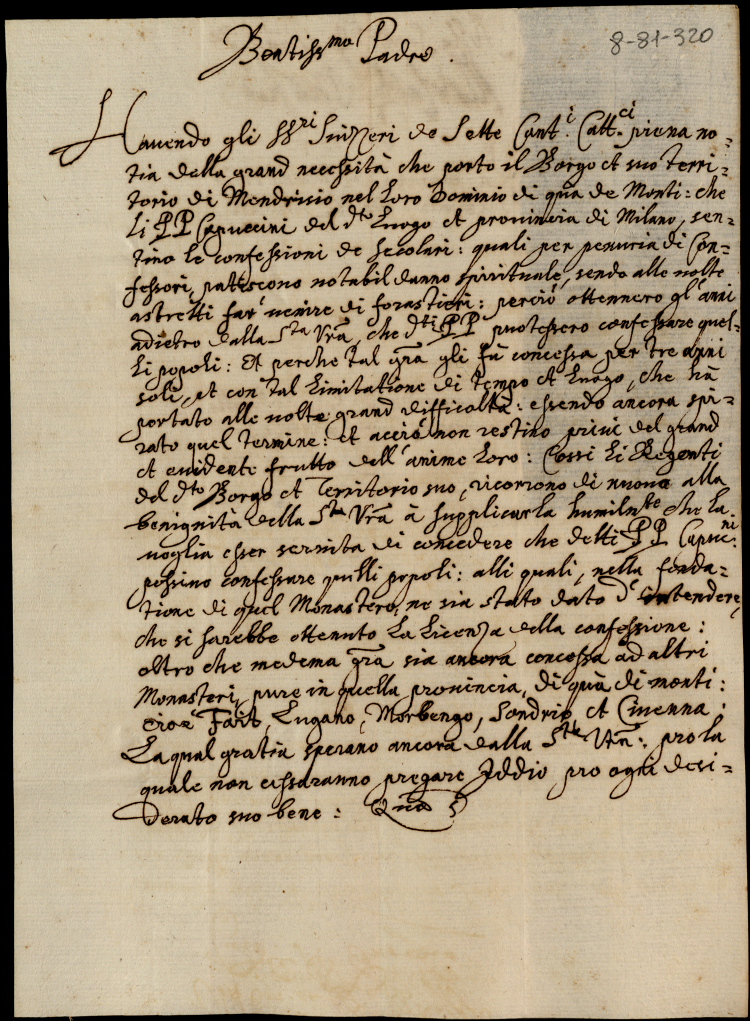 8-81-320
Beatissmo Padre.
Havendo gli SSri Suizzeri de Sette Cant.i Catt.ci piena no=
titia della grand necessità che porto il Borgo et suo terri=
torio di Mendrisio nel Loro Dominio di quà de Monti: che
li PP Capuccini del dto Luogo et provincia di Milano, sen=
tino le confessioni de secolari: quali per penuria di Con=
fessori, patiscono notabil danno spirituale, sendo alle volte
astretti far venire di forastieri: perciò ottennero gl'anni
adietro dalla Sta Vra, che dti PP puotessero confessare quel=
li popoli: Et perche tal gra gli fù concessa per tre anni
soli, et con tal limitatione di tempo et luogo, che hà
portato alle volte grand difficoltà: essendo ancora spi=
rato quel termine: et acciò non restino privi del grand
et evidente frutto dell'anime loro: Cossi li Regenti
del dto Borgo et Territorio suo, ricorrono di nuovo alla
benignità della Sta Vra à supplicarla humilmte che la
voglia esser servita di concedere che detti PP Capuc.ni
possino confessare quelli popoli: alli quali, nella fonda=
tione di quel Monastero, ne sia stato dato d'intendere,
che si sarebbe ottenuto la licenza della confessione:
oltro che medema gra sia ancora concessa ad altri
Monasteri, pure in quella provincia, di quà di monti:
cioè Faid, Lugano, Morbengo, Sondrio, et Civenna:
La qual gratia sperano ancora dalla Sta Vra: pro la
quale non cessaranno pregare Iddio pro ogni desi=
derato suo bene: